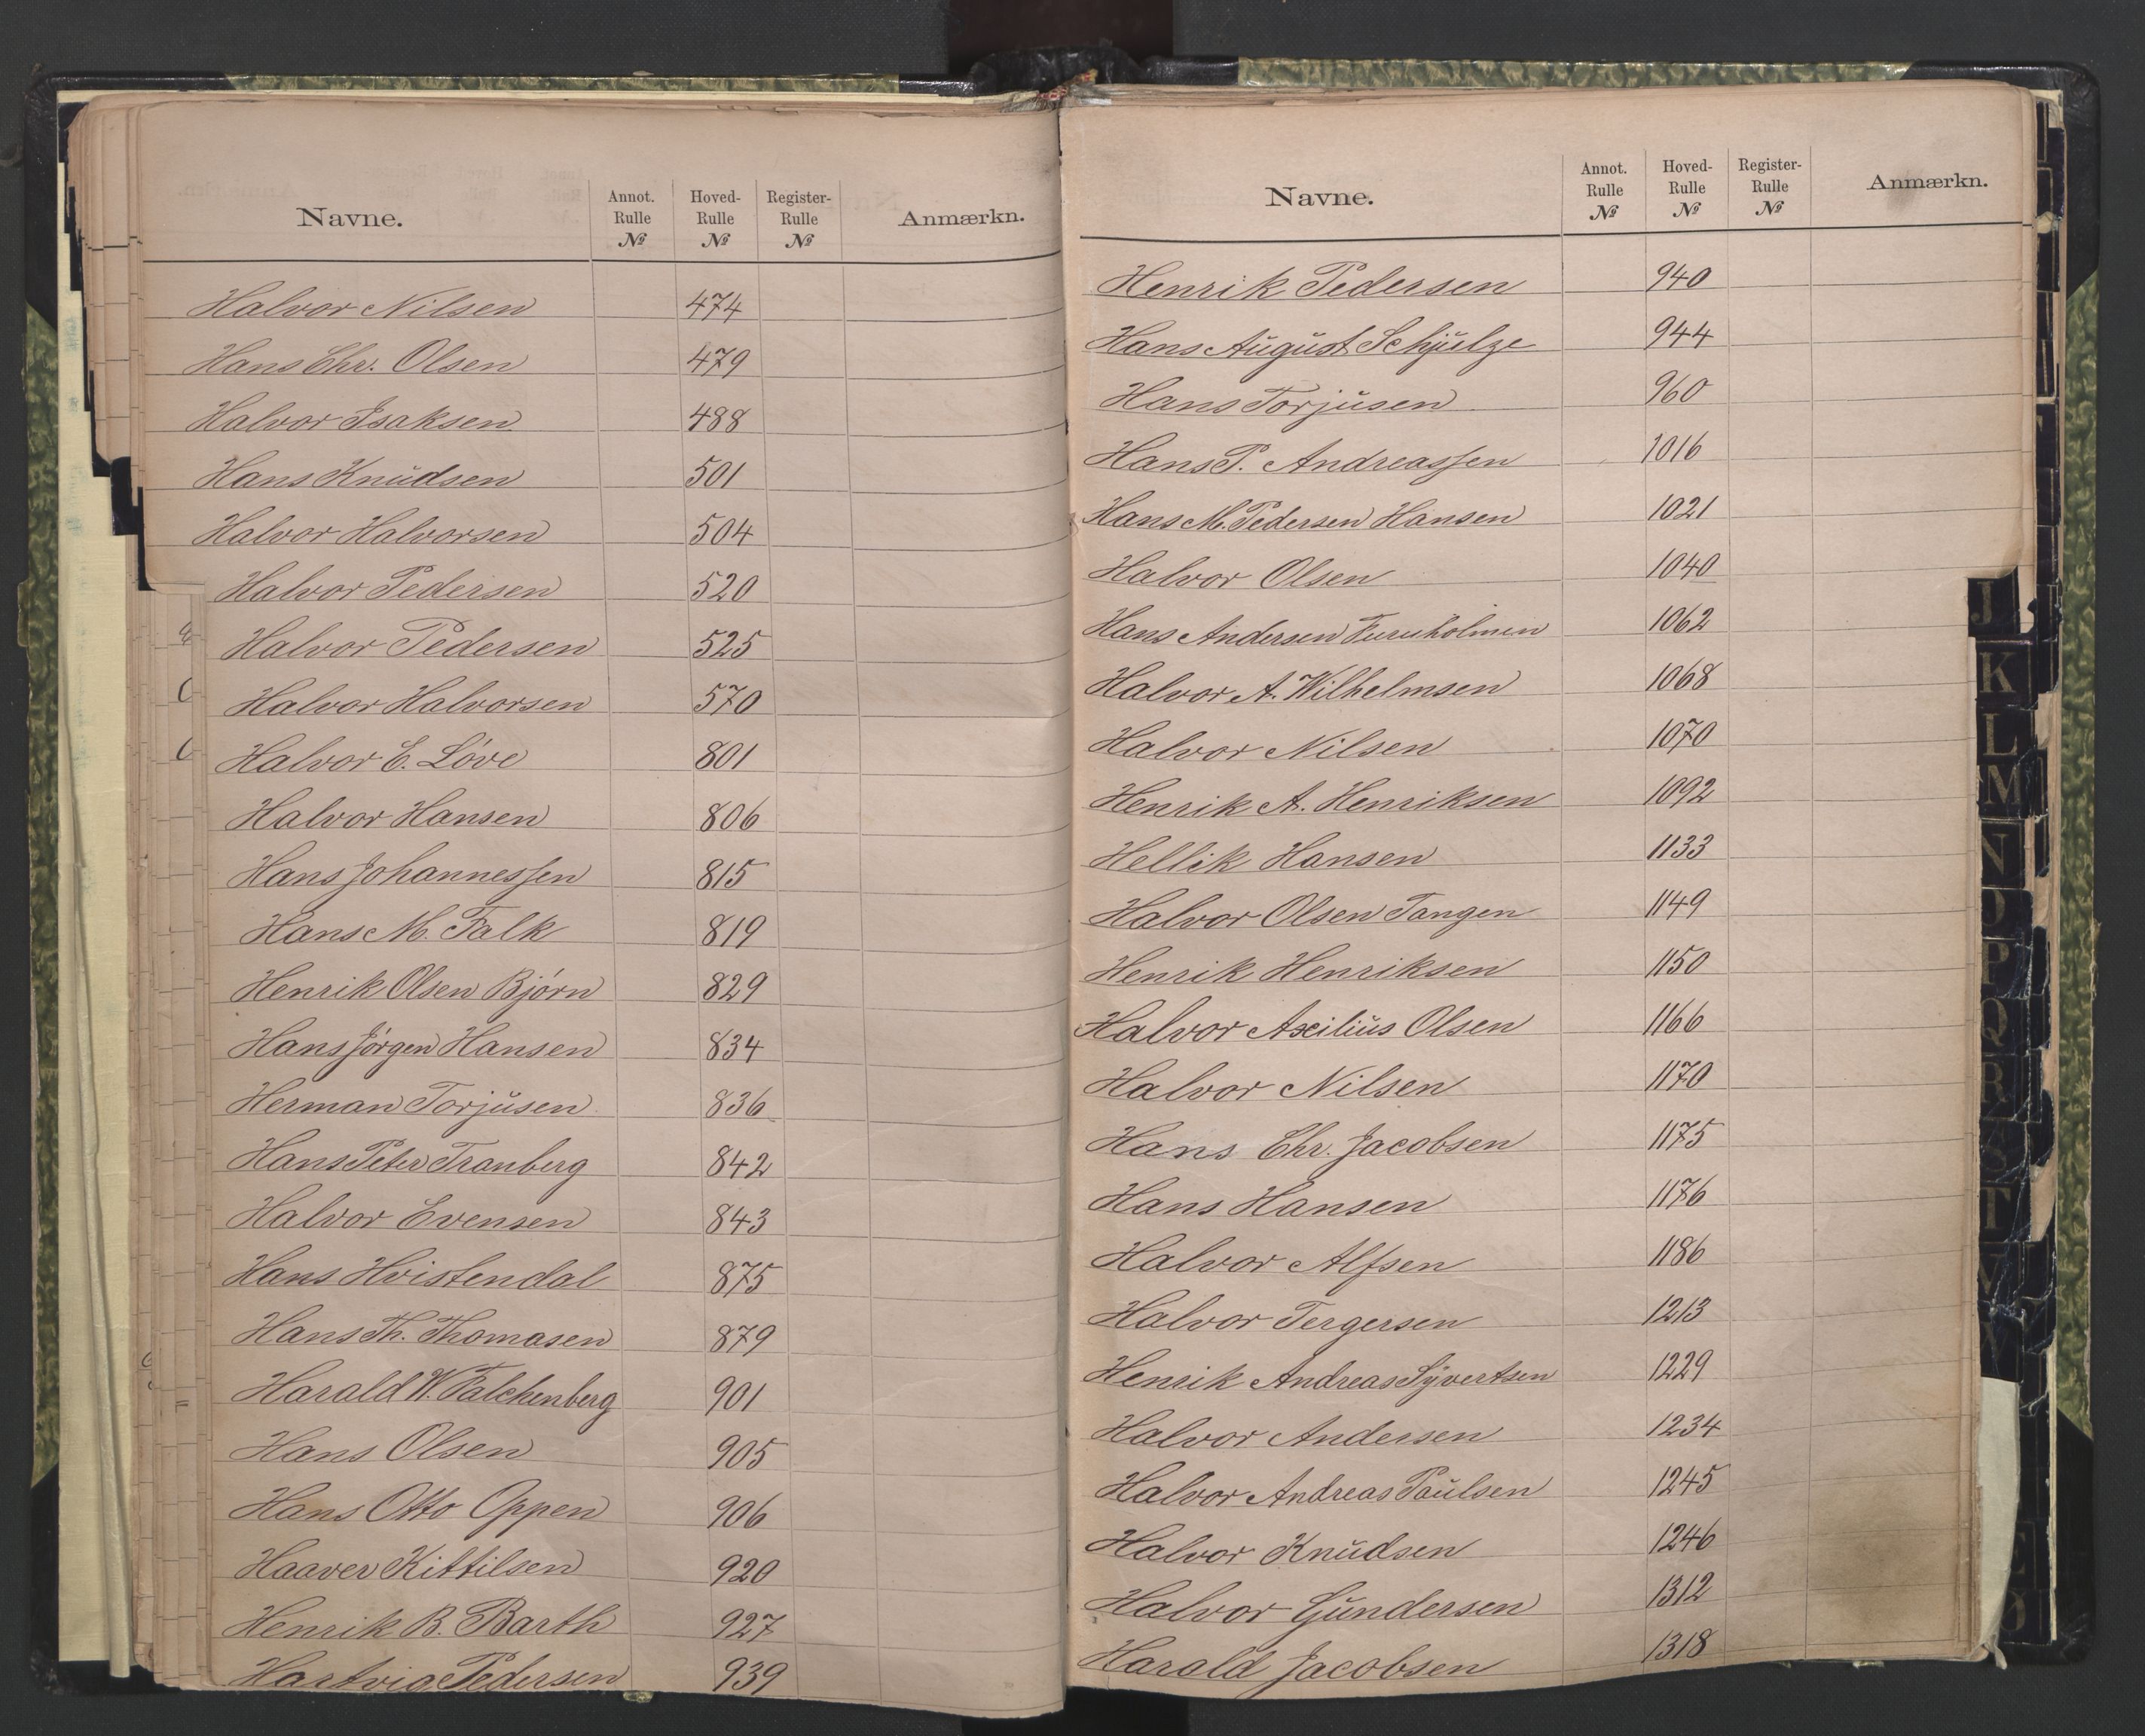 Navne. Annot. Rulle № Hoved- Rulle № Register- Rulle № Anmærkn.
Halvor Nilsen 474
Hans Chr. Olsen 479
Halvor Isaksen 488
Hans Knudsen 501
Halvor Halvorsen 504
Halvor Pedersen 520
Halvor Pedersen 525
Halvor Halvorsen 570
Halvor E. Løve 801
Halvor Hansen 806
Hans Johannessen 815
Hans M. Falk 819
Henrik Olsen Bjørn 829
Hans Jørgen Hansen 834
Herman Torjusen 836
Hans Peter Tranberg 842
Halvor Evensen 843
Hans Hvistendal 875
Hans Th. Thomasen 879
Harald W. Falchenberg 901
Hans Olsen 905
Hans Otto Oppen 906
Haaver Kittilsen 920
Henrik B. Barth 927
Hartvig Pedersen 939
Navne. Annot. Rulle № Hoved- Rulle № Register- Rulle № Anmærkn.
Henrik Pedersen 940
Hans August Schjulze 944
Hans Torjusen 960
Hans P. Andreassen 1016
Hans M. Pedersen Hansen 1021
Halvor Olsen 1040
Hans Andersen Furuholmen 1062
Halvor A. Wilhelmsen 1068
Halvor Nilsen 1070
Henrik A. Henriksen 1092
Hellik Hansen 1133
Halvor Olsen Tangen 1149
Henrik Henriksen 1150
Halvor Axilius Olsen 1166
Halvor Nilsen 1170
Hans Chr. Jacobsen 1175
Hans Hansen 1176
Halvor Alfsen 1186
Halvor Tergersen 1213
Henrik Andreas Syvertsen 1229
Halvor Andersen 1234
Halvor Andreas Paulsen 1245
Halvor Knudsen 1246
Halvor Gundersen 1312
Harald Jacobsen 1318
J
K
L
M
N
O
P
Q
R
S
T
V